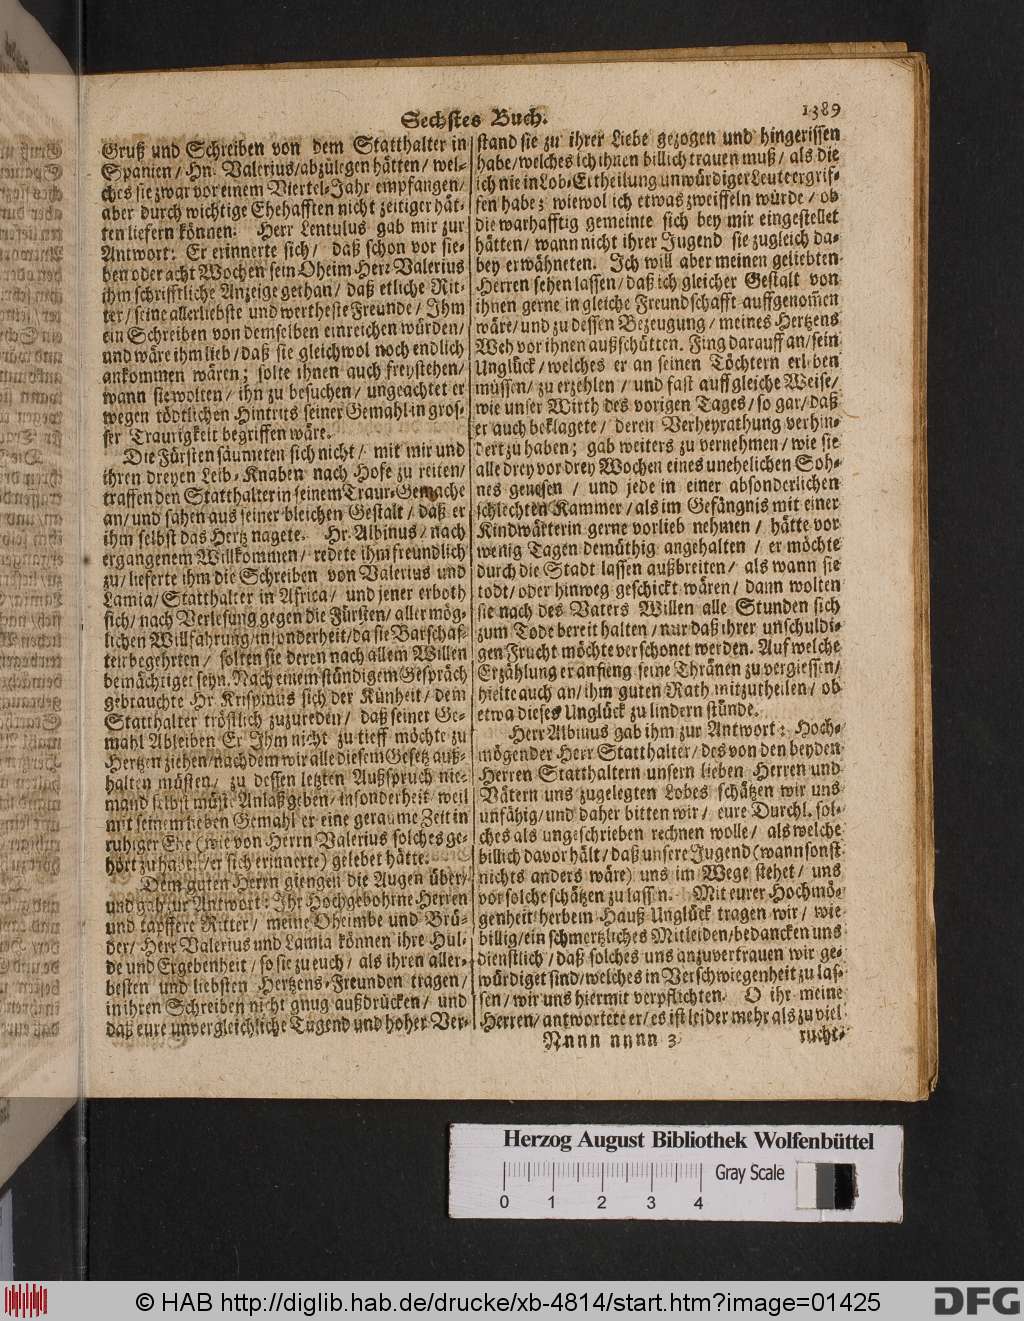 Sechstes Buch. 1389
Gruß und Schreiben von dem Statthalter in
Spanien / Hn. Valerius / abzulegen hätten / wel-
ches sie zwar vor einem Viertel-Jahr empfangen /
aber durch wichtige Ehehafften nicht zeitiger hät-
ten liefern können. Herr Lentulus gab mir zur
Antwort: Er erinnerte sich / daß schon vor sie-
ben oder acht Wochen sein Oheim Herr Valerius
ihm schrifftliche Anzeige gethan / daß etliche Rit-
ter / seine allerliebste und wertheste Freunde / Ihm
ein Schreiben von demselben einreichen würden /
und wäre ihm lieb / daß sie gleichwol noch endlich
ankommen wären; solte ihnen auch freystehen /
wann sie wolten / ihn zu besuchen / ungeachtet er
wegen tödtlichen Hintrits seiner Gemahlin in gros-
ser Traurigkeit begriffen wäre.
Die Fürsten säumeten sich nicht / mit mir und
ihren dreyen Leib-Knaben nach Hofe zu reiten /
traffen den Statthalter in seinem Traur-Gemache
an / und sahen aus seiner bleichen Gestalt / daß er
ihm selbst das Hertz nagete. Hr. Albinus / nach
ergangenem Willkommen / redete ihm freundlich
zu / lieferte ihm die Schreiben von Valerius und
Lamia / Statthalter in Africa / und jener erboth
sich / nach Verlesung gegen die Fürsten / aller mög-
lichen Willfahrung / insonderheit / da sie Barschaf-
ten begehrten / solten sie deren nach allem Willen
bemächtiget seyn. Nach einem ständigem Gespräch
gebrauchte Hr. Krispinus sich der Künheit / dem
Statthalter tröstlich zuzureden / daß seiner Ge-
mahl Ableiben Er Ihm nicht zu tieff möchte zu
Hertzen ziehen / nachdem wir alle diesem Gesetz auß-
halten müsten / zu dessen letzten Außspruch nie-
mand selbst müste Anlaß geben / insonderheit weil
mit seinem lieben Gemahl er eine geraume Zeit in
ruhiger Ehe (wie von Herrn Valerius solches ge-
hört zu haben / er sich erinnerte) gelebet hätte.
Dem guten Herrn giengen die Augen über /
und gab zur Antwort: Ihr Hochgebohrne Herren
und tapffere Ritter / meine Oheimbe und Brü-
der / Herr Valerius und Lamia können ihre Hul-
de und Ergebenheit / so sie zu euch / als ihren aller-
besten und liebsten Hertzens-Freunden tragen /
in ihren Schreiben nicht gnug außdrücken / und
daß eure unvergleichliche Tugend und hoher Ver-
stand sie zu ihrer Liebe gezogen und hingerissen
habe / welches ich ihnen billich trauen muß / als die
ich nie in Lob-Ertheilung unwürdiger Leute ergrif-
fen habe; wiewol ich etwas zweiffeln würde / ob
die warhafftig gemeinte sich bey mir eingestellet
hätten / wann nicht ihrer Jugend sie zugleich da-
bey erwähneten. Ich will aber meinen geliebten
Herren sehen lassen / daß ich gleicher Gestalt von
ihnen gerne in gleiche Freundschafft auffgenom̃en
wäre / und zu dessen Bezeugung / meines Hertzens
Weh vor ihnen außschütten. Fing darauff an / sein
Unglück / welches er an seinen Töchtern erleben
müssen / zu erzehlen / und fast auff gleiche Weise /
wie unser Wirth des vorigen Tages / so gar / daß
er auch beklagete / deren Verheyrathung verhin-
dert zu haben; gab weiters zu vernehmen / wie sie
alle drey vor drey Wochen eines unehelichen Soh-
nes genesen / und jede in einer absonderlichen
schlechten Kammer / als im Gefängnis mit einer
Kindwärterin gerne vorlieb nehmen / hätte vor
wenig Tagen demüthig angehalten / er möchte
durch die Stadt lassen außbreiten / als wann sie
todt / oder hinweg geschickt wären / dann wolten
sie nach des Vaters Willen alle Stunden sich
zum Tode bereit halten / nur daß ihrer unschuldi-
gen Frucht möchte verschonet werden. Auf welche
Erzählung er anfieng seine Thränen zu vergiessen /
hielte auch an / ihm guten Rath mitzutheilen / ob
etwa dieses Unglück zu lindern stünde.
Herr Albinus gab ihm zur Antwort: Hoch-
mögender Herr Statthalter / des von den beyden
Herren Statthaltern unsern lieben Herren und
Vätern uns zugelegten Lobes schätzen wir uns
unfähig / und daher bitten wir / eure Durchl. sol-
ches als ungeschrieben rechnen wolle / als welche
billich davor hält / daß unsere Jugend (wann sonst
nichts anders wäre) uns im Wege stehet / uns
vor solche schätzen zu lassen. Mit eurer Hochmö-
genheit herbem Hauß Unglück tragen wir / wie
billig / ein schmertzliches Mitleiden / bedancken uns
dienstlich / daß solches uns anzuvertrauen wir ge-
würdiget sind / welches in Verschwiegenheit zu las-
sen / wir uns hiermit verpflichten. O ihr meine
Herren / antwortete er / es ist leider mehr als zu viel
Nnnn nnnn 3 rucht-
Herzog August Bibliothek Wolfenbüttel
Gray Scale
0 1 2 3 4
© HAB http://diglib.hab.de/drucke/xb-4814/start.htm?image=01425
DFG